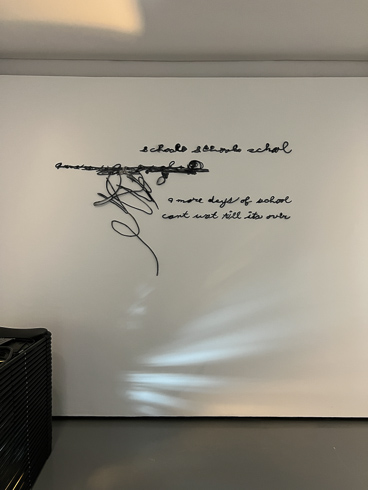 schools schools school
9 more days of school
cant wat till its over